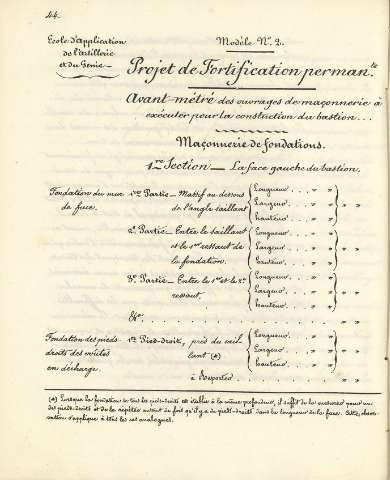 44.
Ecole d'Application
de l'Artillerie
et du Génie
Modèle N.º 2.
Projet de Fortification perman.te
Avant-métré des ouvrages de maçonnerie à
exécuter pour la construction du bastion...
Maçonnerie de fondations.
1re Section — La face gauche du bastion.
Fondation du mur
de face.
1re Partie — Massif au dessous
de l'angle saillant
Longueur.... " "
Largeur.... " "
hauteur.... " "
" "
2e Partie — Entre le saillant
et le 1er ressaut de
la fondation.
Longueur.... " "
Largeur.... " "
hauteur.... " "
" "
3e Partie — Entre le 1er et le 2e
ressaut.
Longueur.... " "
Largeur.... " "
hauteur.... " "
" "
Etc. . . . . . . . " "
Fondation des pieds
droits des voûtes
en décharge.
1er Pied-droit, près du sail
lant (*)
Longueur.... " "
Largeur.... " "
hauteur.... " "
" "
à Reporter . . . . " "
(*) Lorsque la fondation de tous les pieds-droits est établie à la même profondeur, il suffit de la mesurer pour un
des pieds-droits et de la répéter autant de fois qu'il y a de pieds-droits dans la longueur de la face. Cette obser-
vation s'applique à tous les cas analogues.